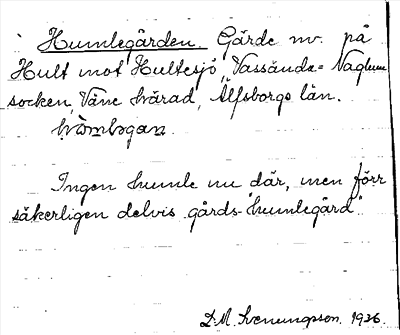 Humlegården. Gärde nv. på
Hult mot Hultesjö, Vassända-Naglum
socken, Väne härad, Älfsborgs län.
hòmləgan.
Ingen humle nu där, men förr
säkerligen delvis gårds-"humlegård".
D.M. Svenungsson. 1936.